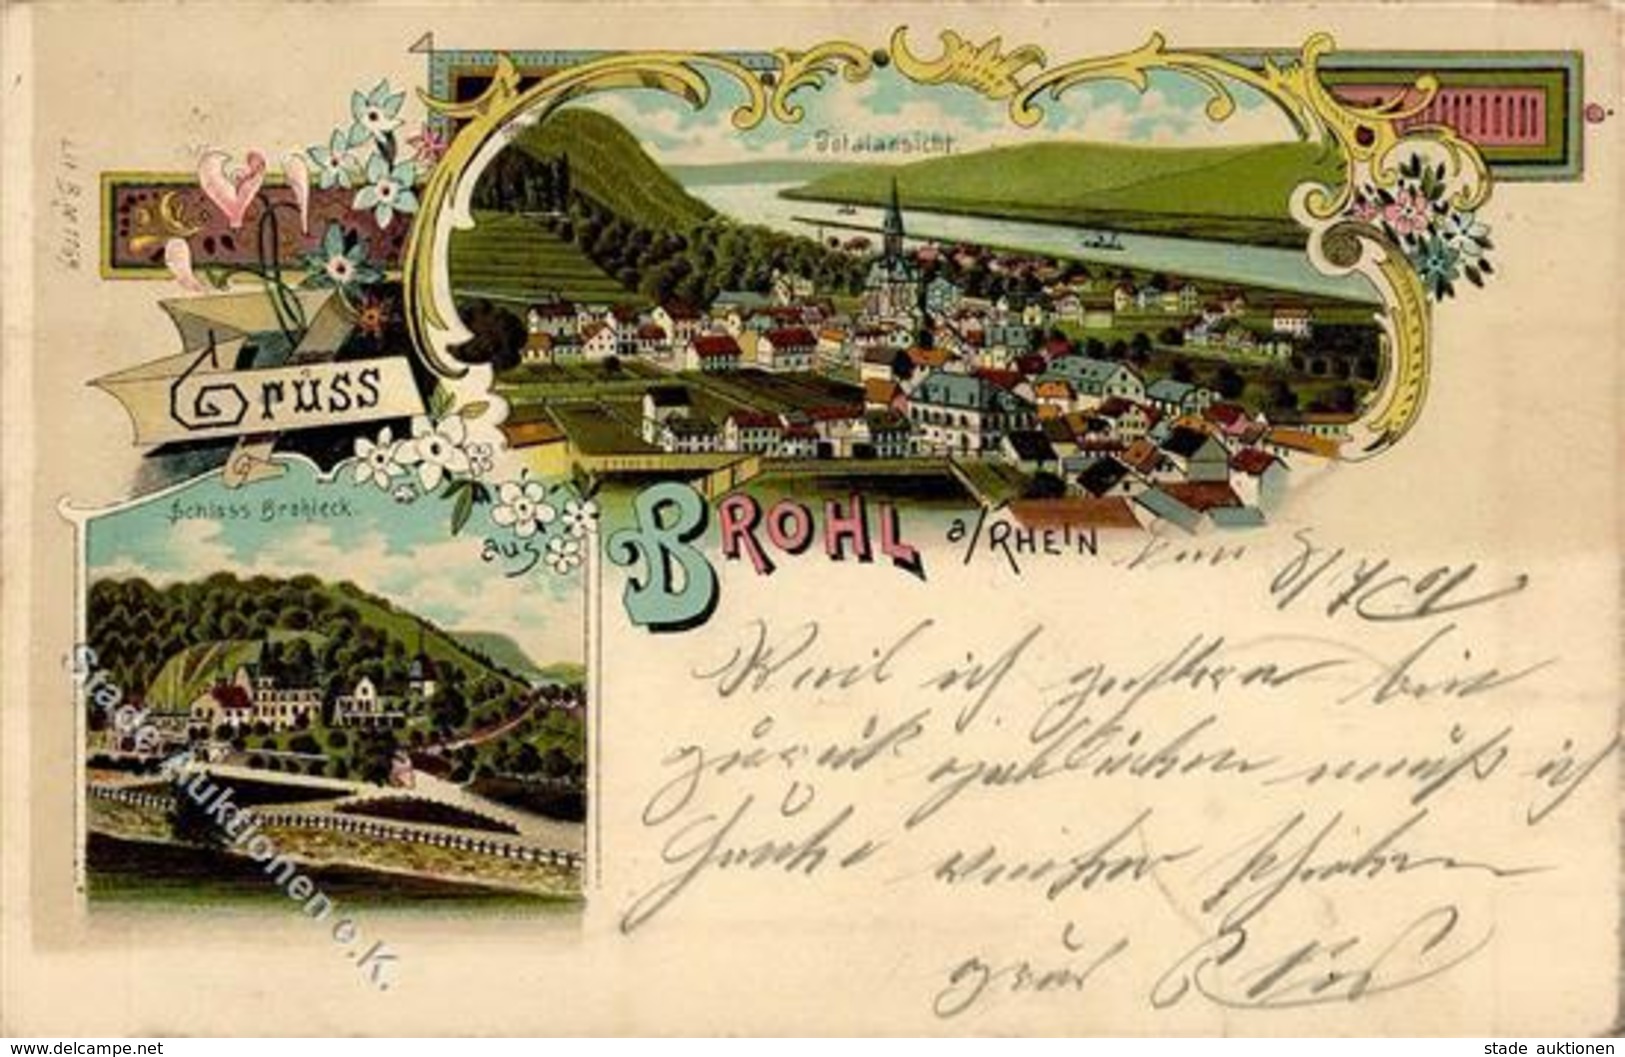 Totalansicht.
Gruss
Schloss Brohleck.
aus
BROHL a/RHEIN
8/7 01
Weil ich gestern bin
zurück muß ich
Heute wieder schreiben
Stade Auktionen o.K.
www.delcampe.net
stade auktionen